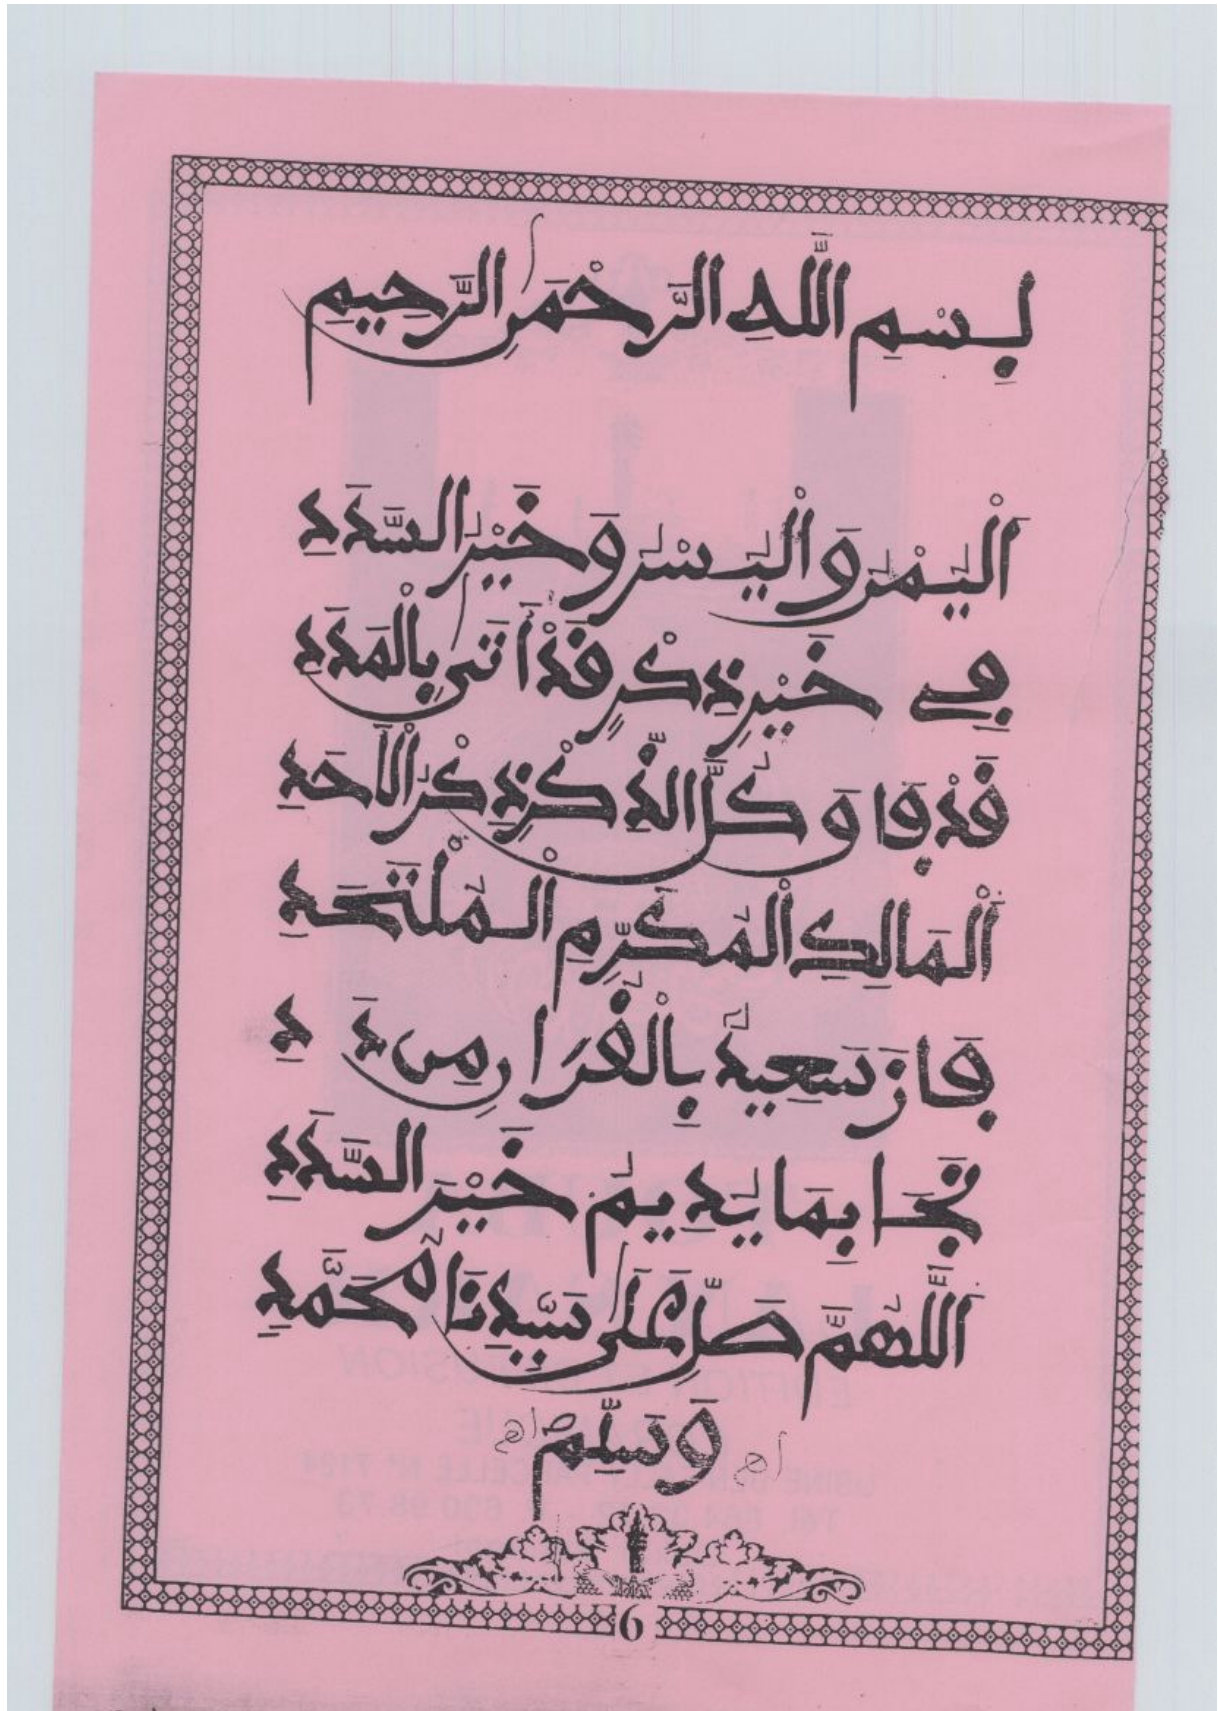 بِسْمِ اللَّهِ الرَّحْمَنِ الرَّحِيمِ
اَلْيُمْنُ وَالْيُسْرُ وَخَيْرُ السَّدَدِ
فِي خَيْرِ ذِكْرٍ قَدْ أَتَى بِالْمَدَدِ
قَدْ فَاقَ كُلَّ الذِّكْرِ ذِكْرُ الْأَحَدِ
اَلْمَالِكِ الْمُكَرِّمِ الْمُلْتَحَدِ
فَازَ سَعِيدٌ بِالْقُرَانِ مِن دَدِ
نَجَا بِمَا يُدِيمُ خَيْرَ السَّدَدِ
اَللَّهُمَّ صَلِّ عَلَى سَيِّدِنَا مُحَمَّدٍ
وَسَلِّمْ
6